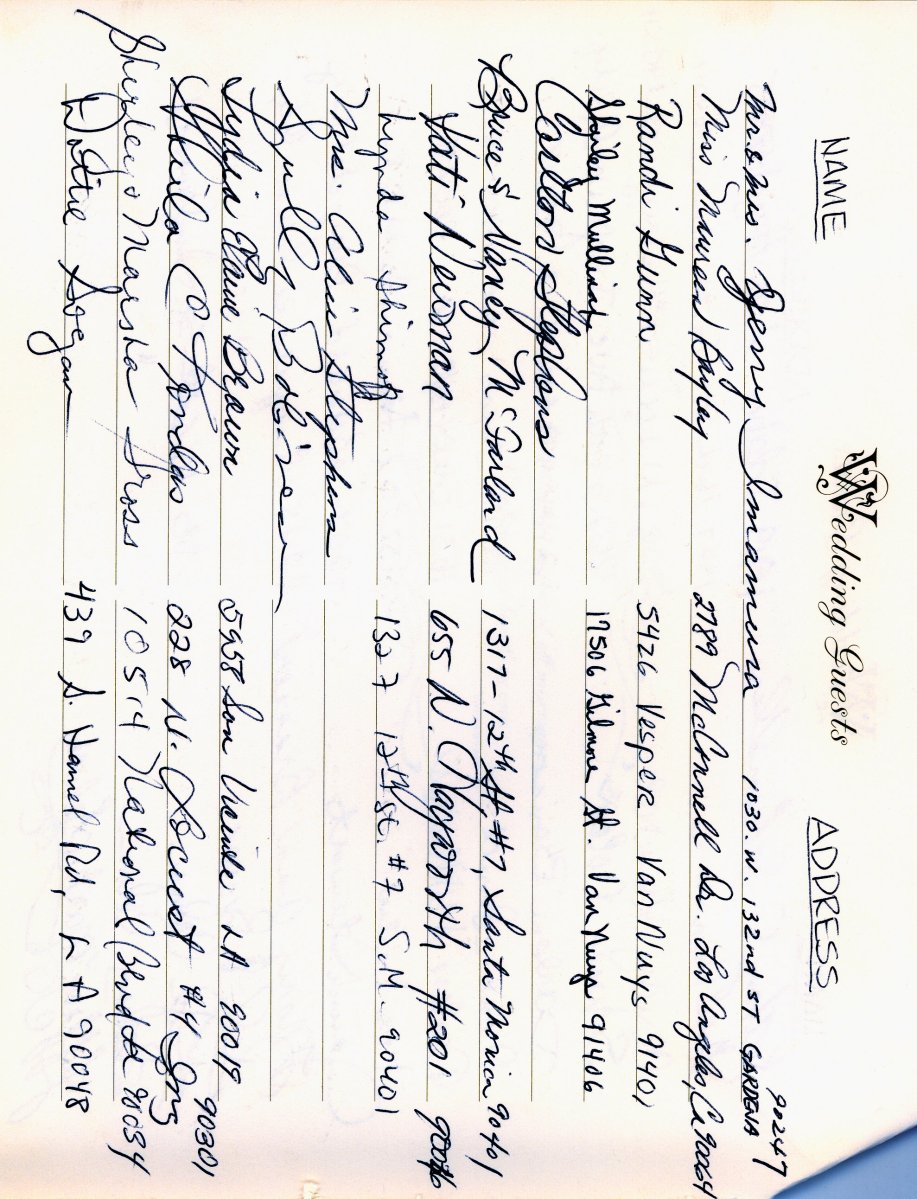 Wedding Guests
NAME ADDRESS
Mr. & Mrs. Jerry Imamura 1030. W. 132nd ST GARDENA 90247
Miss Maureen Bayley 2789 McConnell Dr. Los Angeles, Ca 90064
Randi Gunn 5426 Vesper Van Nuys 91401
Shirley Mullinax 17506 Gilmore St. Van Nuys 91406
Carlton Stephens
Bruce & Nancy McFarland 1317-12th St #7, Santa Monica 90401
Patti Newman 655 N. #201
Lynda 1327 12th St. #7 S.M. 90401
Mrs. Alvin Stephens
Lydia Elaine Brown 5958 San Vicente LA 90019
Sheila C 228 N. Locust #4 Ing 90301
Marsha Gross 10514 National Blvd LA 90034
Dottie 439 S. Hamel Rd, LA 90048